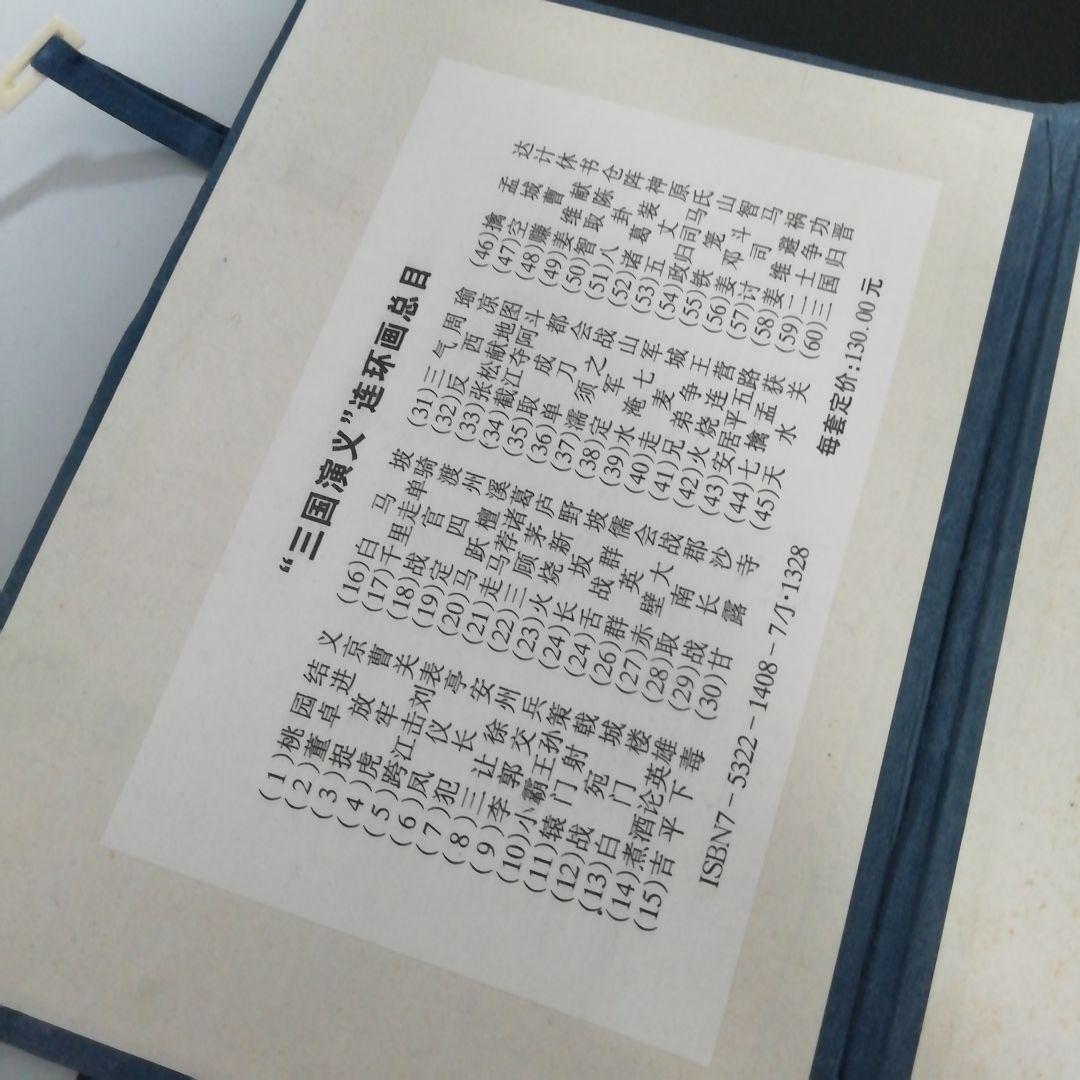 “三国演义”连环画总目
(1)桃园结义
(2)董卓进京
(3)捉放曹
(4)虎牢关
(5)跨江击刘表
(6)凤仪亭
(7)犯长安
(8)三让徐州
(9)李郭交兵
(10)小霸王孙策
(11)辕门射戟
(12)战宛城
(13)白门楼
(14)煮酒论英雄
(15)吉平下毒
(16)白马坡
(17)千里走单骑
(18)战官渡
(19)定四州
(20)马跃檀溪
(21)走马荐诸葛
(22)三顾茅庐
(23)火烧新野
(24)长坂坡
(24)舌战群儒
(26)群英会
(27)赤壁大战
(28)取南郡
(29)战长沙
(30)甘露寺
(31)三气周瑜
(32)反西凉
(33)张松献地图
(34)截江夺阿斗
(35)取成都
(36)单刀会
(37)濡须之战
(38)定军山
(39)水淹七军
(40)走麦城
(41)兄弟争王
(42)火烧连营
(43)安居平五路
(44)七擒孟获
(45)天水关
(46)擒孟达
(47)空城计
(48)赚曹休
(49)姜维献书
(50)智取陈仓
(51)八卦阵
(52)诸葛装神
(53)五丈原
(54)政归司马氏
(55)铁笼山
(56)姜邓斗智
(57)讨司马
(58)姜维避祸
(59)二士争功
(60)三国归晋
ISBN7-5322-1408-7/J·1328
每套定价:130.00元